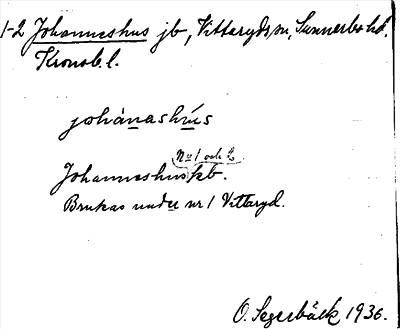 1-2 Johanneshus jb, Vittaryds sn, Sunnerbo hd.
Kronob. l.
johánashús
No 1 och 2
Johanneshus kb.
Brukas under nr 1 Vittaryd.
O. Segerbäck 1936.